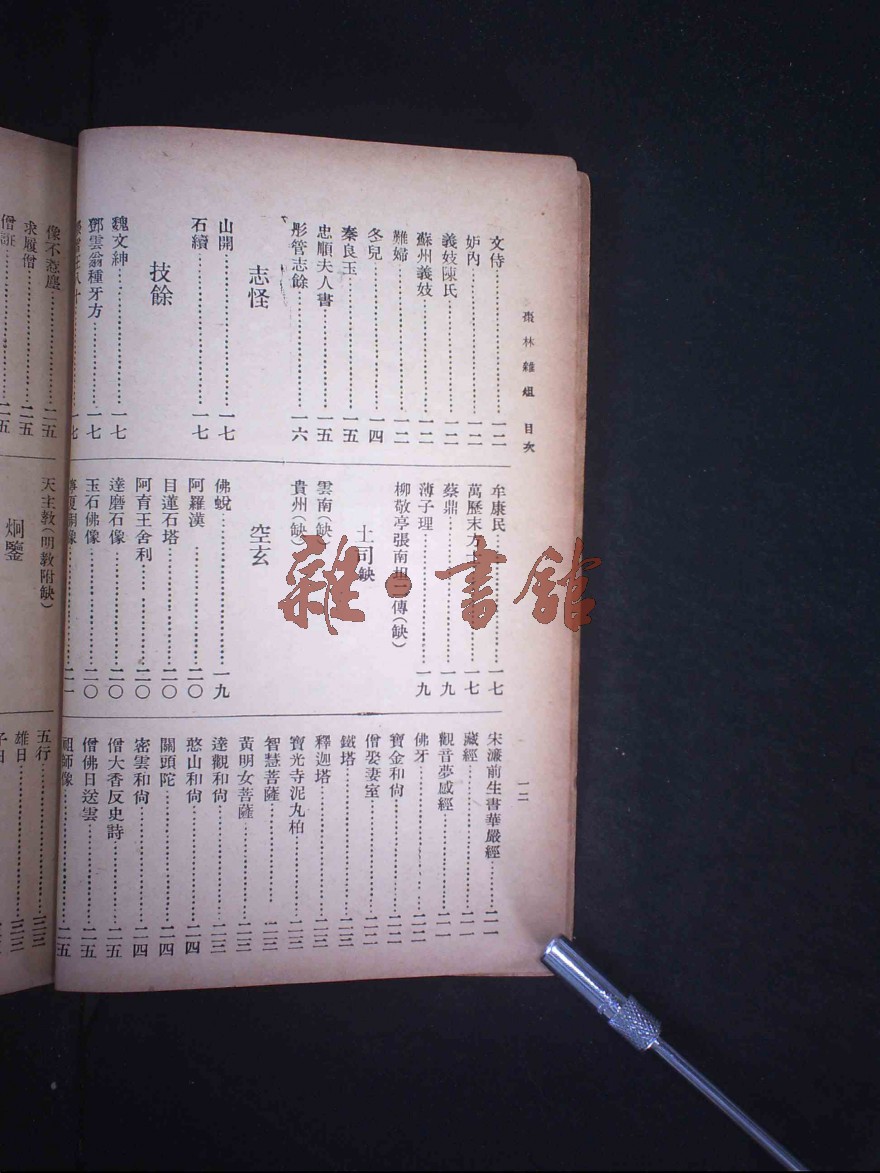 棗林雜俎 目次
一二
文侍………一二
妒內………一二
義妓陳氏………一二
蘇州義妓………一二
難婦………一二
冬兒………一四
秦良玉………一五
忠順夫人書………一五
彤管志餘………一六
志怪
山開………一七
石續………一七
技餘
魏文紳………一七
鄧雲翁種牙方………一七
牟康民………一七
萬歷末方………一七
蔡鼎………一九
薄子理………一九
柳敬亭張南垣二傳(缺)
土司缺
雲南(缺)
貴州(缺)
空玄
佛蛻………一九
阿羅漢………二〇
目蓮石塔………二〇
阿育王舍利………二〇
達磨石像………二〇
玉石佛像………二〇
宋濂前生書華嚴經………二一
藏經………二一
觀音夢感經………二一
佛牙………二二
寶金和尙………二二
僧娶妻室………二二
鐵塔………二三
釋迦塔………二三
寶光寺泥丸柏………二三
智慧菩薩………二三
黃明女菩薩………二三
達觀和尙………二三
憨山和尙………二四
關頭陀………二四
密雲和尙………二四
僧大香反史詩………二五
僧佛日送雲………二五
祖師像………二五
像不惹塵………二五
求履僧………二五
僧誑………二五
天主敎(明敎附缺)
炯鑒
五行………三三
雄日………三三
雜·書館